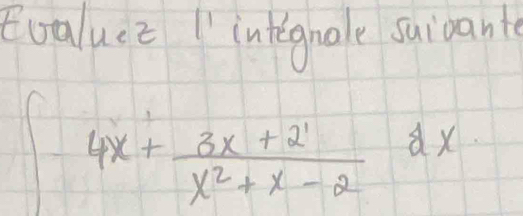 Evaluez l'intégrale suivante
∫ 4x + (3x + 2)/(x² + x - 2) dx